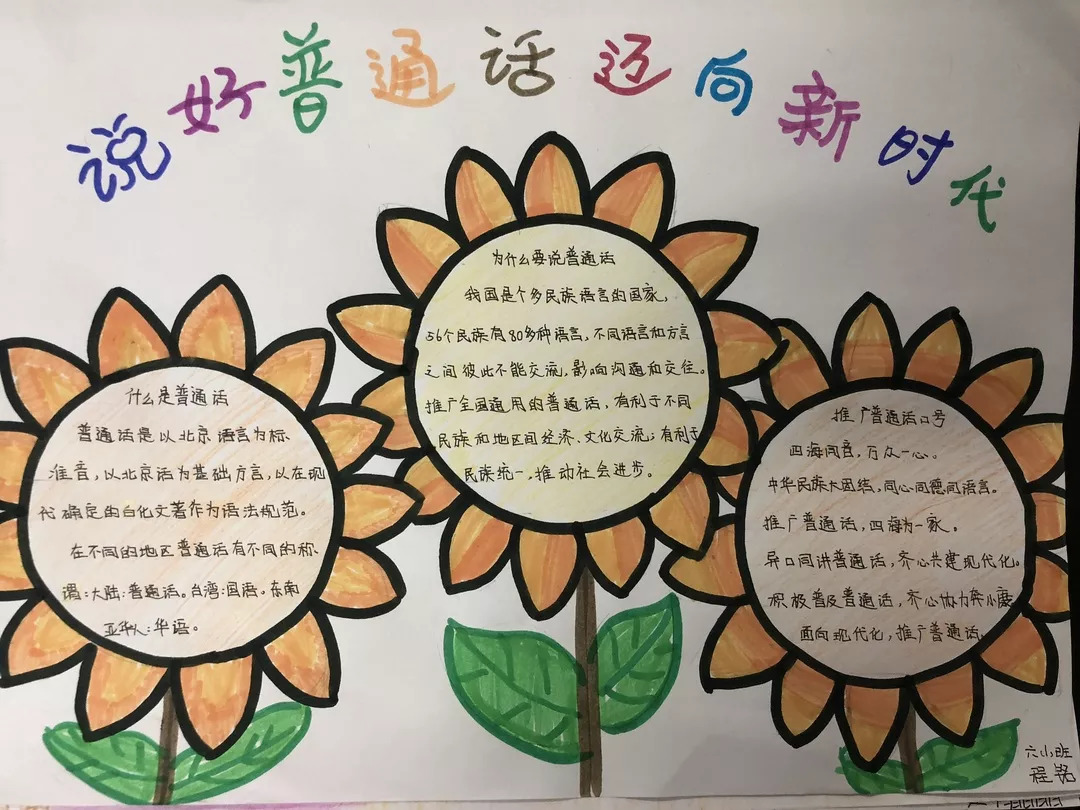 说好普通话迈向新时代
什么是普通话
普通话是以北京语言为标
准音，以北京话为基础方言，以在现
代确定的白化文著作为语法规范。
在不同的地区普通话有不同的称
谓：大陆：普通话。台湾：国语。东南
亚华人：华语。
为什么要说普通话
我国是个多民族语言的国家，
56个民族有80多种语言，不同语言和方言
之间彼此不能交流，影响沟通和交往。
推广全国通用的普通话，有利于不同
民族和地区间经济、文化交流；有利于
民族统一，推动社会进步。
推广普通话口号
四海同音，万众一心。
中华民族大团结，同心同德同语言。
推广普通话，四海为一家。
异口同讲普通话，齐心共建现代化。
积极普及普通话，齐心协力奔小康
面向现代化，推广普通话。
六小班
程铭